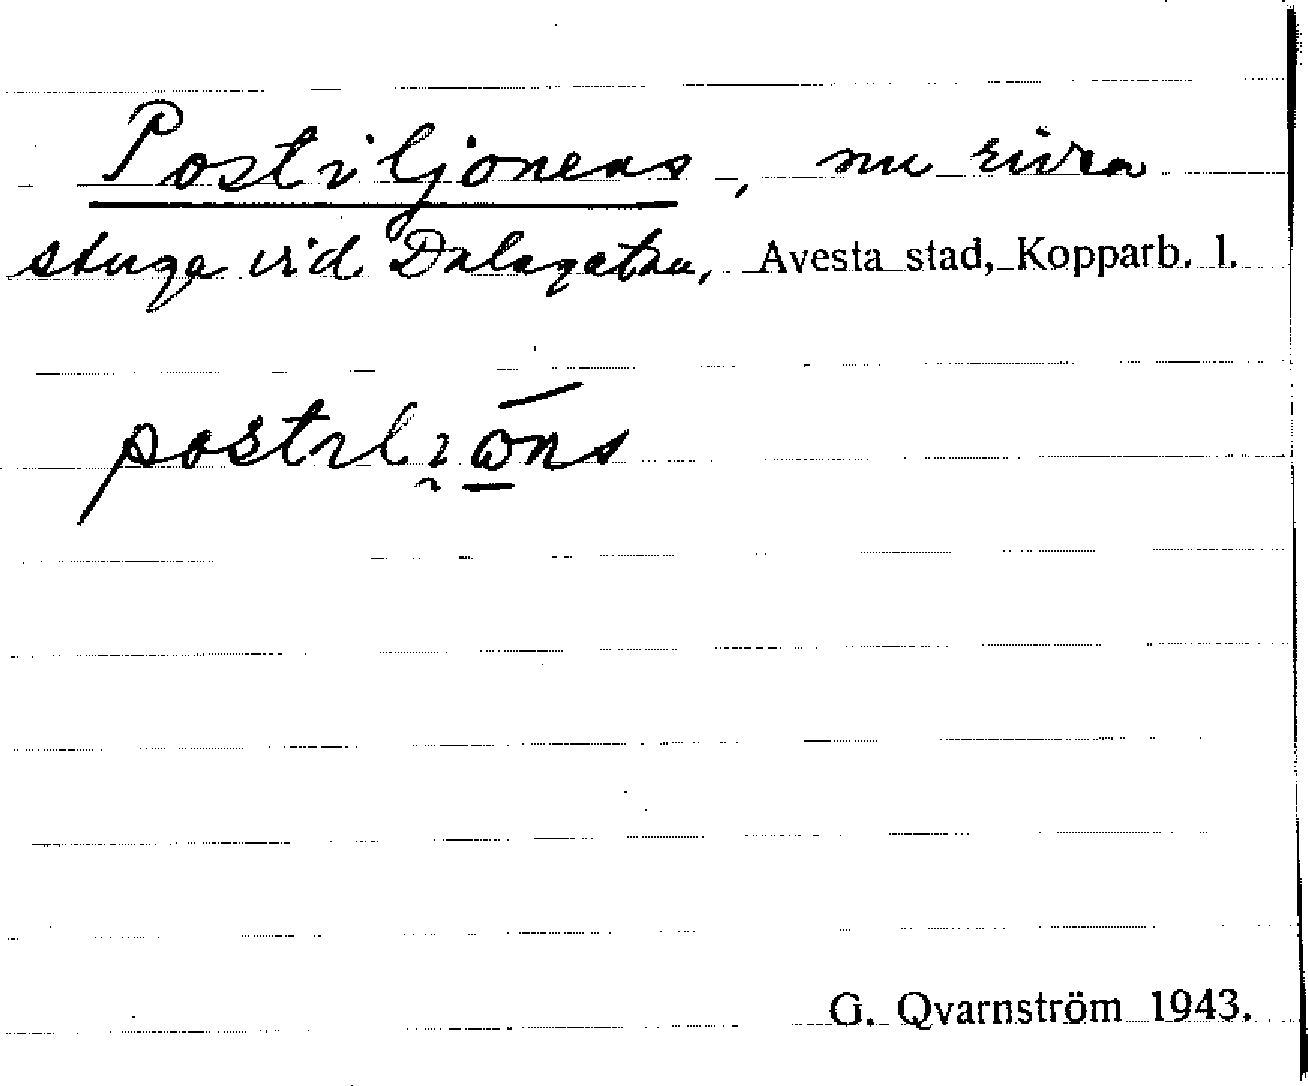 Postiljonens, nu riven
stuga vid Dalagatan, Avesta stad, Kopparb. l.
postilįω̄ns
G. Qvarnström 1943.